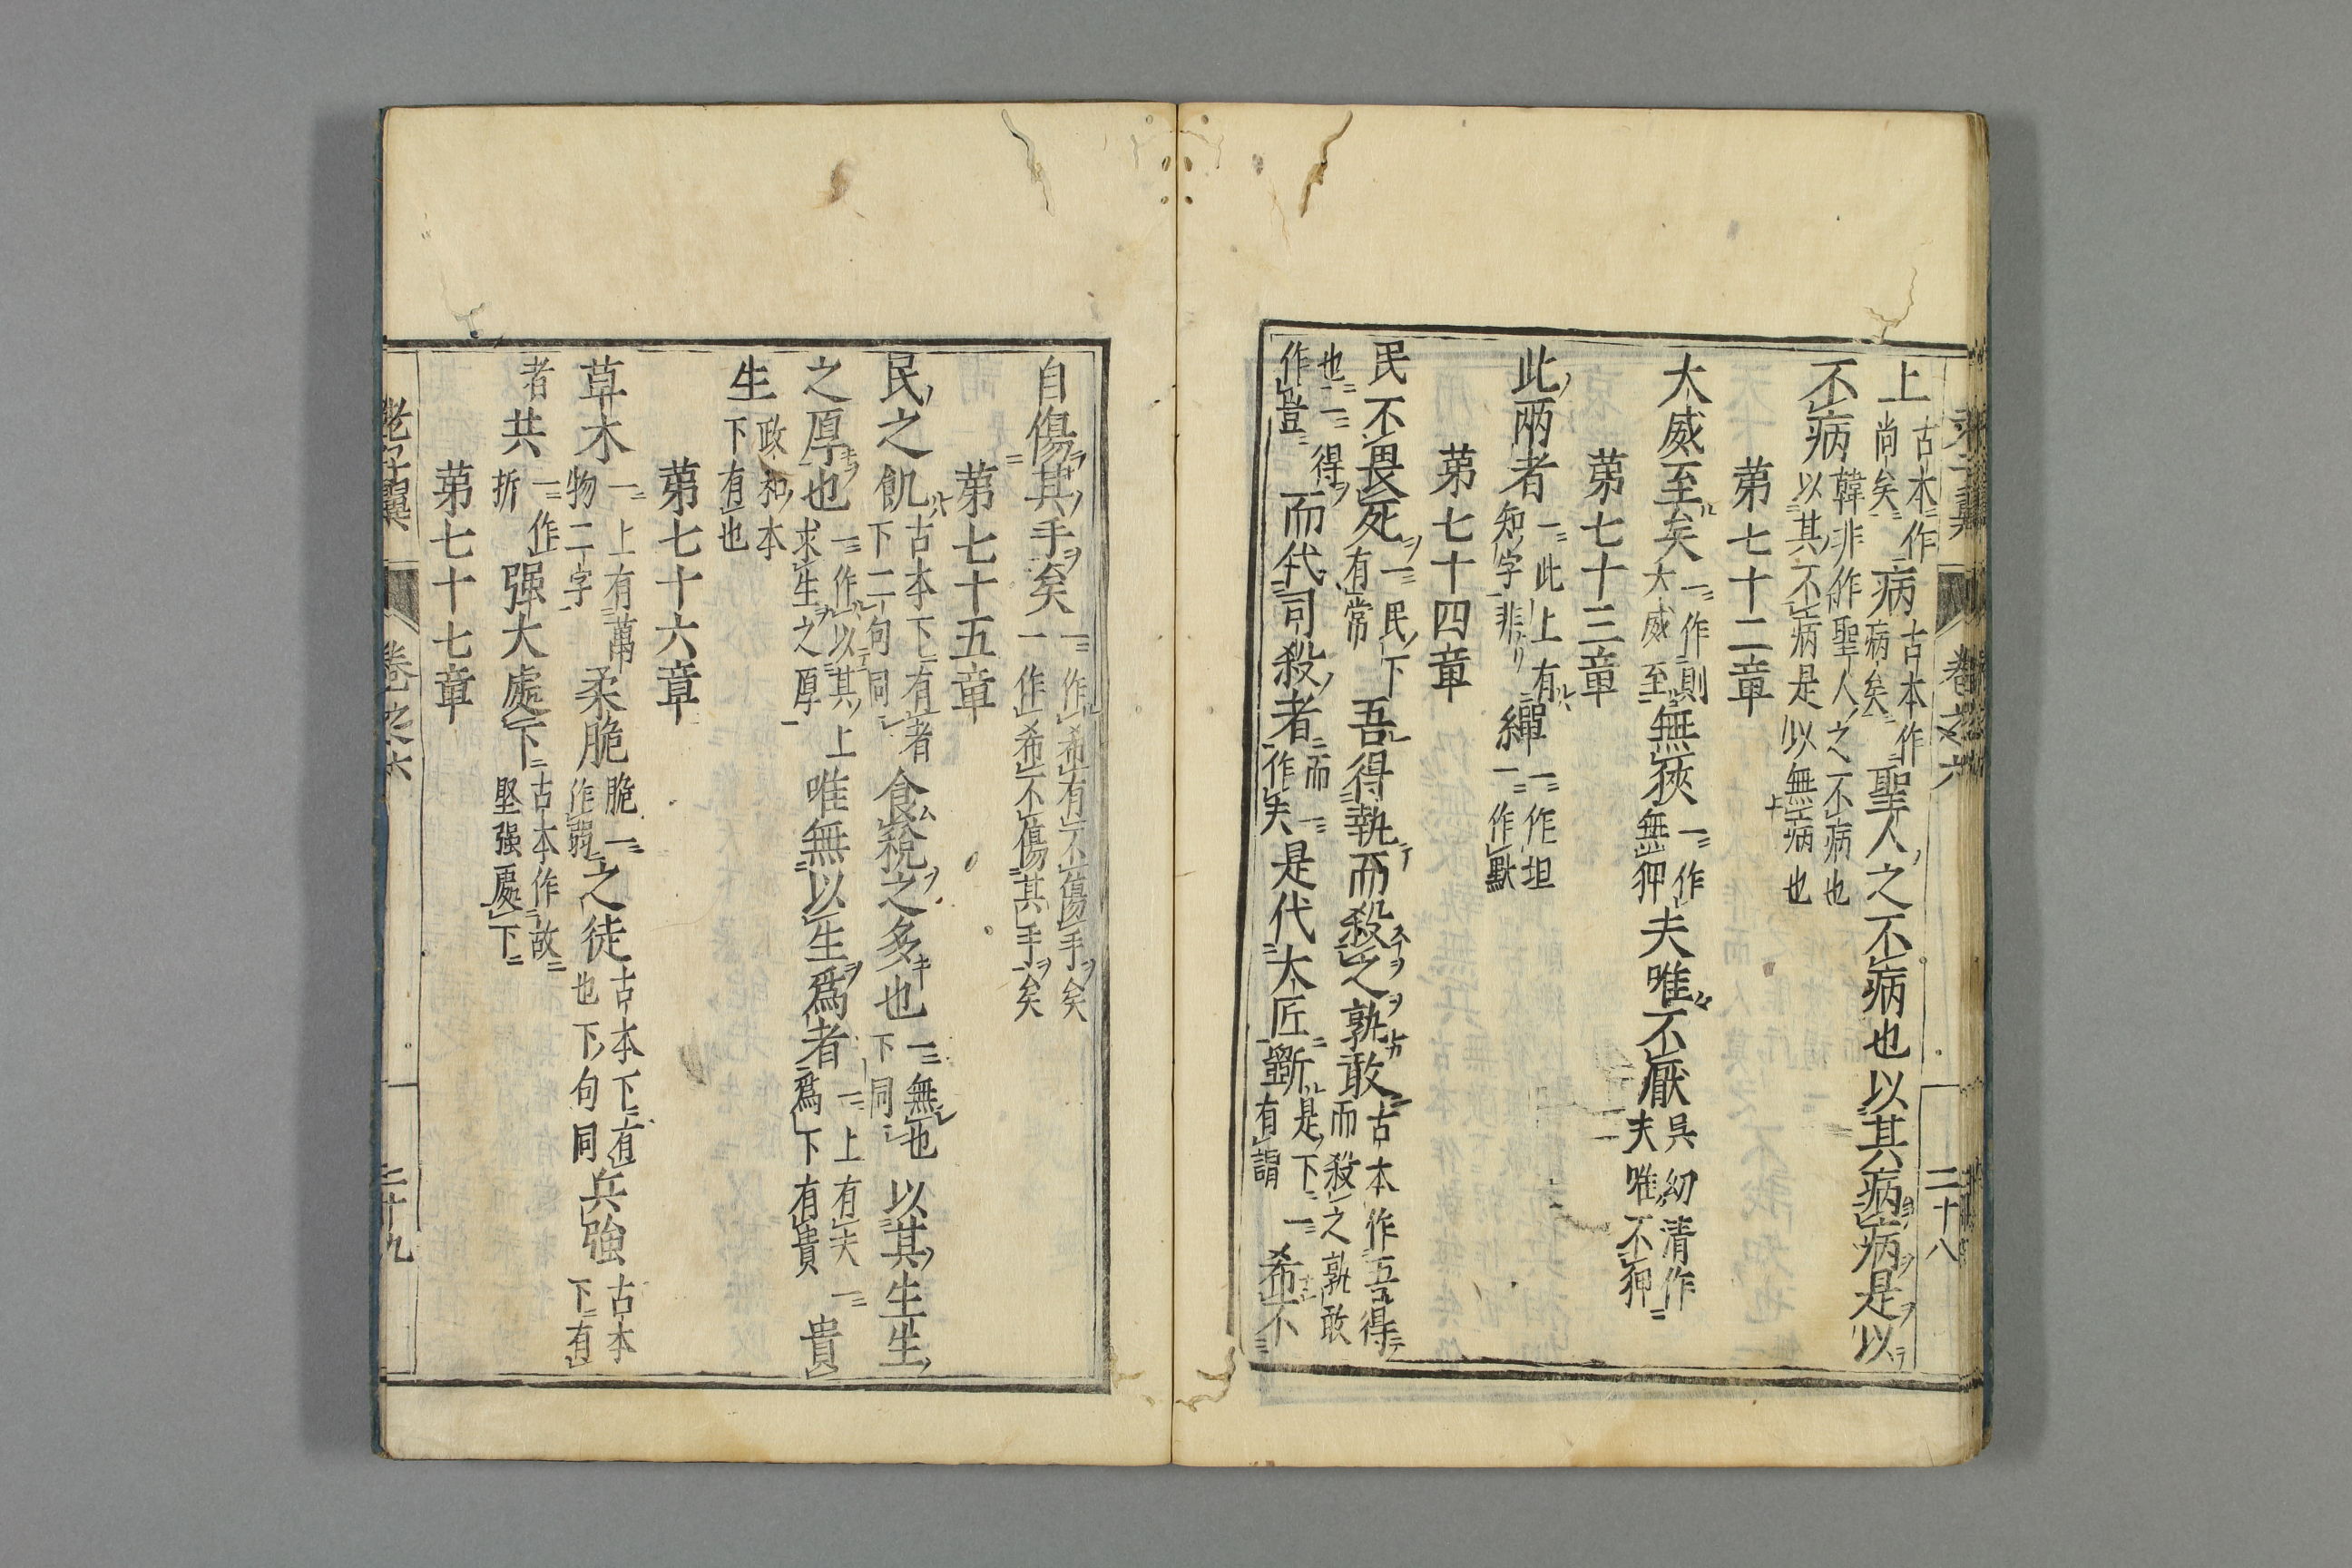 上古本作尚矣病古本作病矣聖人之不病也以其病病是以
不病韓非作聖人之不病也以其不病是以無病也
第七十二章
大威至矣一作則大威至無狹一作無狎夫唯不厭吳幼清作夫唯不狎
第七十三章
此兩者一此上有知字非繟一作坦一作默
第七十四章
民不畏死一民下有常吾得執而殺之孰敢古本作吾得而殺之孰敢
也一一得作豈而代司殺者一而作夫是代大匠斲是下一有謂希不
卷之六
二十八
自傷其手矣一作希有不傷手矣一作希不傷其手矣
第七十五章
民之飢古本下有者下二句同食稅之多也一無也下同以其生生
之厚也一作以其上求生之厚唯無以生爲者一上有夫一爲下有貴貴
生政和本下有也
第七十六章
草木一上有萬物二字柔脆脆一作弱之徒古本下有也下句同兵強古本下有
者共一作折强大處下古本作故堅强處下
第七十七章
老子翼
卷之六
二十九